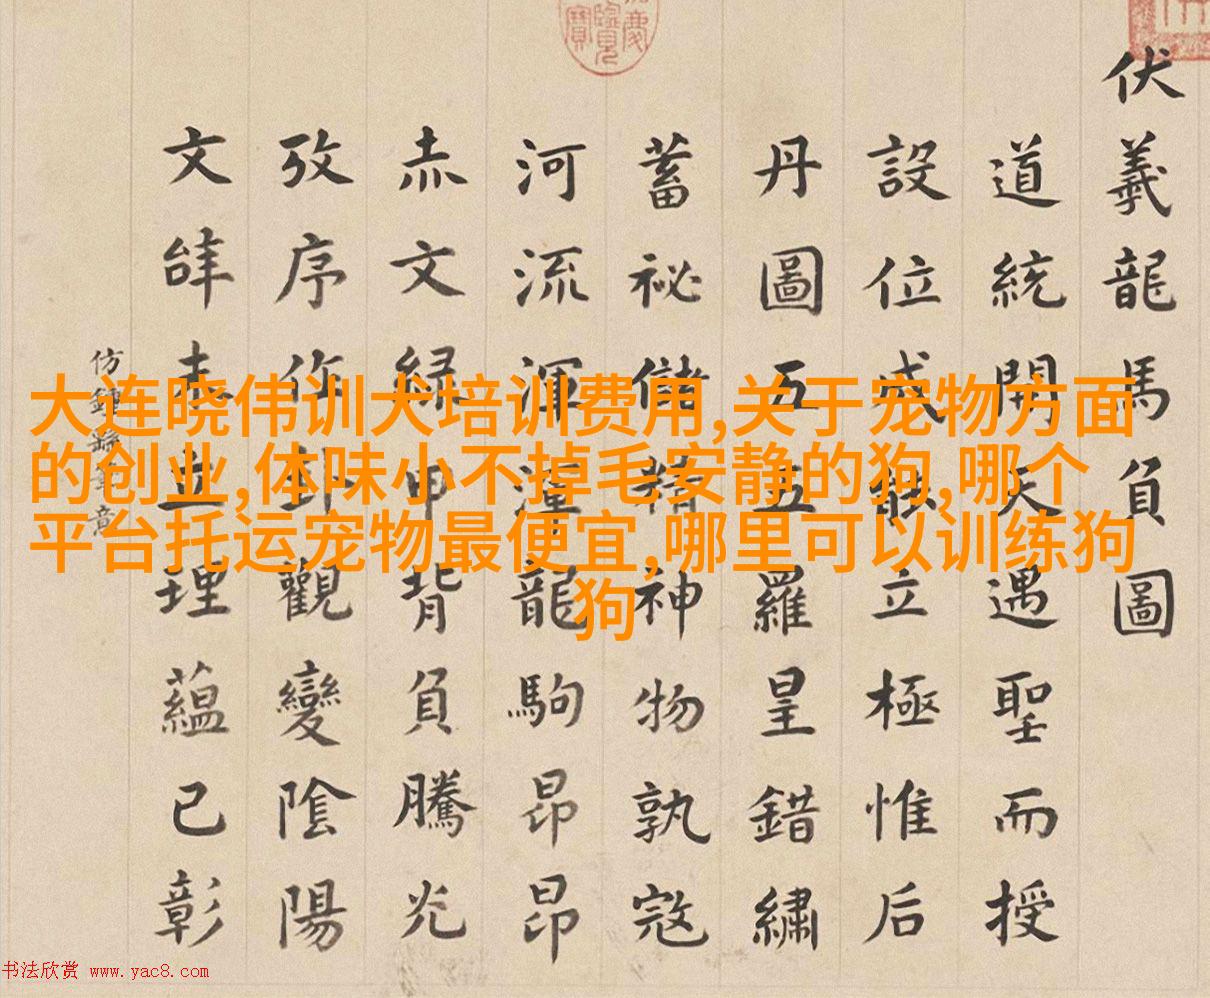 伏羲龍馬負圖
道統開天遇聖而授
設位成能立極惟后
丹圖五五羅皇錯繡
蓄祕儲精神物孰寇
河流渾龍駒昂昂
赤文緑甲背負騰光
攷序作卦觀變陰陽
文表理蘊已彰
仿鍾繇意
慶覽寶
大连晓伟训犬培训费用,关于宠物方面
的创业,体味小不掉毛安静的狗,哪个
平台托运宠物最便宜,哪里可以训练狗
狗
书法欣赏 www.yac8.com